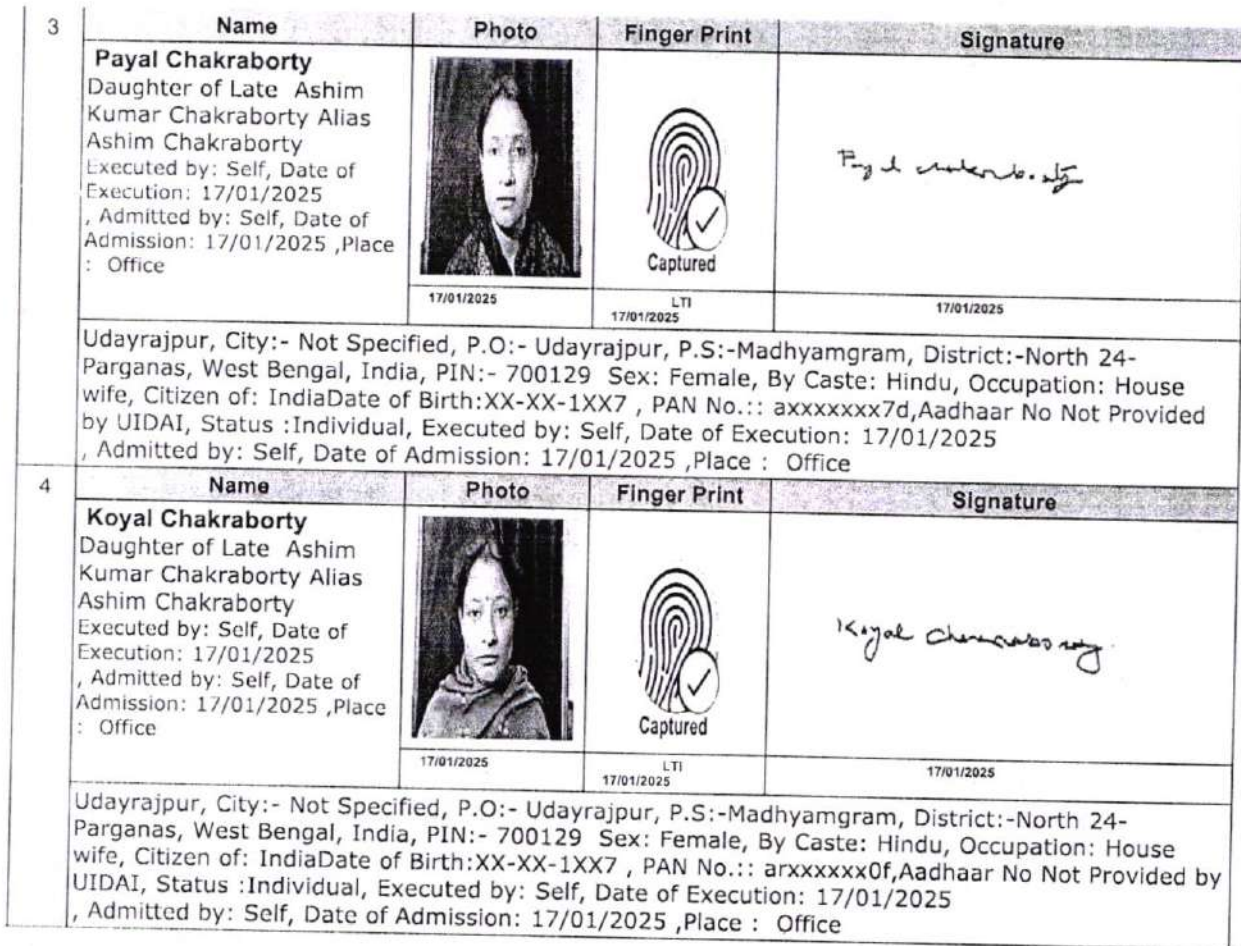 3
Name Photo Finger Print Signature
Payal Chakraborty
Daughter of Late Ashim
Kumar Chakraborty Alias
Ashim Chakraborty
Executed by: Self, Date of
Execution: 17/01/2025
, Admitted by: Self, Date of
Admission: 17/01/2025 ,Place
: Office
Captured
17/01/2025
LTI
17/01/2025
17/01/2025
Udayrajpur, City:- Not Specified, P.O:- Udayrajpur, P.S:-Madhyamgram, District:-North 24-
Parganas, West Bengal, India, PIN:- 700129 Sex: Female, By Caste: Hindu, Occupation: House
wife, Citizen of: IndiaDate of Birth:XX-XX-1XX7 , PAN No.:: axxxxxxx7d,Aadhaar No Not Provided
by UIDAI, Status :Individual, Executed by: Self, Date of Execution: 17/01/2025
, Admitted by: Self, Date of Admission: 17/01/2025 ,Place : Office
4
Name Photo Finger Print Signature
Koyal Chakraborty
Daughter of Late Ashim
Kumar Chakraborty Alias
Ashim Chakraborty
Executed by: Self, Date of
Execution: 17/01/2025
, Admitted by: Self, Date of
Admission: 17/01/2025 ,Place
: Office
Captured
Koyal
17/01/2025
LTI
17/01/2025
17/01/2025
Udayrajpur, City:- Not Specified, P.O:- Udayrajpur, P.S:-Madhyamgram, District:-North 24-
Parganas, West Bengal, India, PIN:- 700129 Sex: Female, By Caste: Hindu, Occupation: House
wife, Citizen of: IndiaDate of Birth:XX-XX-1XX7 , PAN No.:: arxxxxxx0f,Aadhaar No Not Provided by
UIDAI, Status :Individual, Executed by: Self, Date of Execution: 17/01/2025
, Admitted by: Self, Date of Admission: 17/01/2025 ,Place : Office